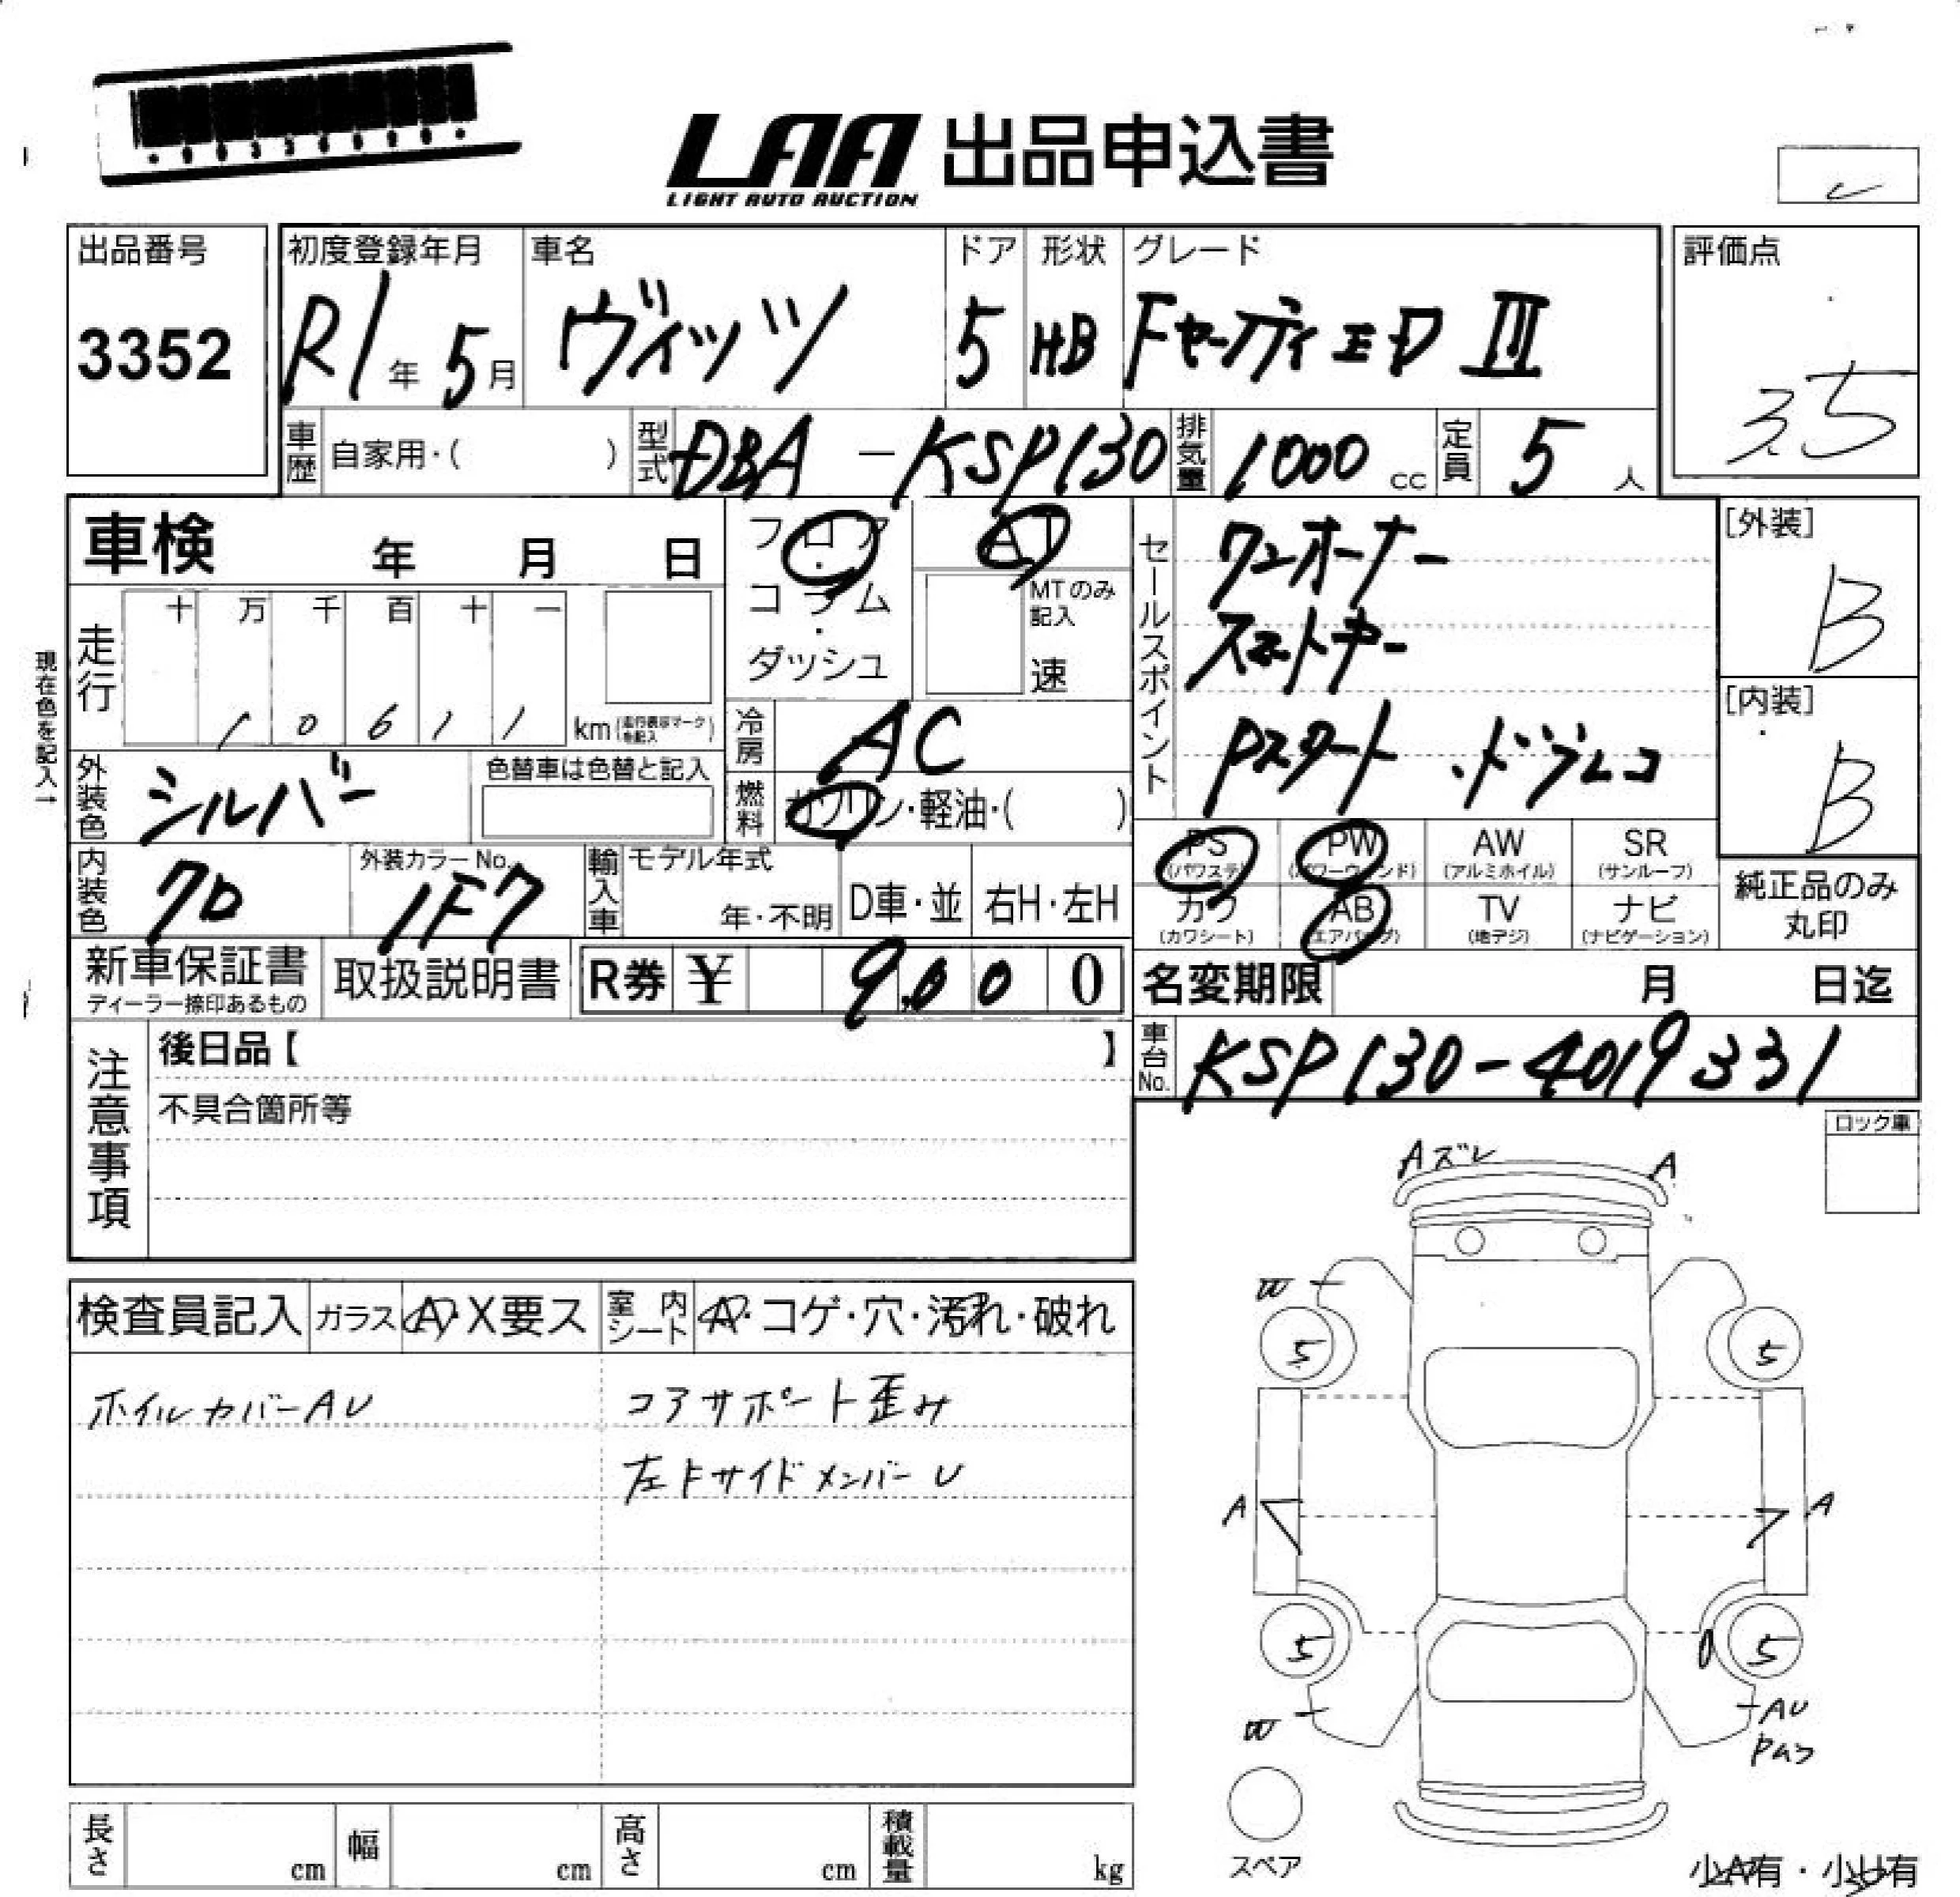 LAA 出品申込書
LIGHT AUTO AUCTION
出品番号
3352
初度登録年月
R1年5月
車名
ヴィッツ
ドア
5
形状
HB
グレード
FセーフティED III
評価点
3.5
車歴 自家用・( )
型式 DBA-KSP130
排気量 1000 cc
定員 5 人
車検 年 月 日
フロア・コラム・ダッシュ
AT
MTのみ記入
速
現在色を記入→
走行
十 万 千 百 十 一
1 0 6 1 1 km
冷房 AC
燃料 ガソリン・軽油・( )
外装色 シルバー
色替車は色替と記入
内装色 クロ
外装カラーNo.
1F7
輸入車
モデル年式
年・不明
D車・並
右H・左H
セールスポイント
ワンオーナー
スマートキー
Pスタート ・ドラレコ
[外装]
B
[内装]
B
PS (パワステ)
PW (パワーウィンド)
AW (アルミホイル)
SR (サンルーフ)
カワ (カワシート)
AB (エアバッグ)
TV (地デジ)
ナビ (ナビゲーション)
純正品のみ
丸印
新車保証書
ディーラー捺印あるもの
取扱説明書
R券 ¥ 9,000
名変期限 月 日迄
車台No. KSP130-4019331
注意事項
後日品【 】
不具合箇所等
ロック車
検査員記入
ガラス A・X要ス
室内シート A・コゲ・穴・汚れ・破れ
ホイルカバーAU
コアサポート歪み
左FサイドメンバーU
Aズレ
A
W
5
5
A
A
5
5
W
AU
スペア
長さ cm
幅 cm
高さ cm
積載量 kg
小A有・小U有